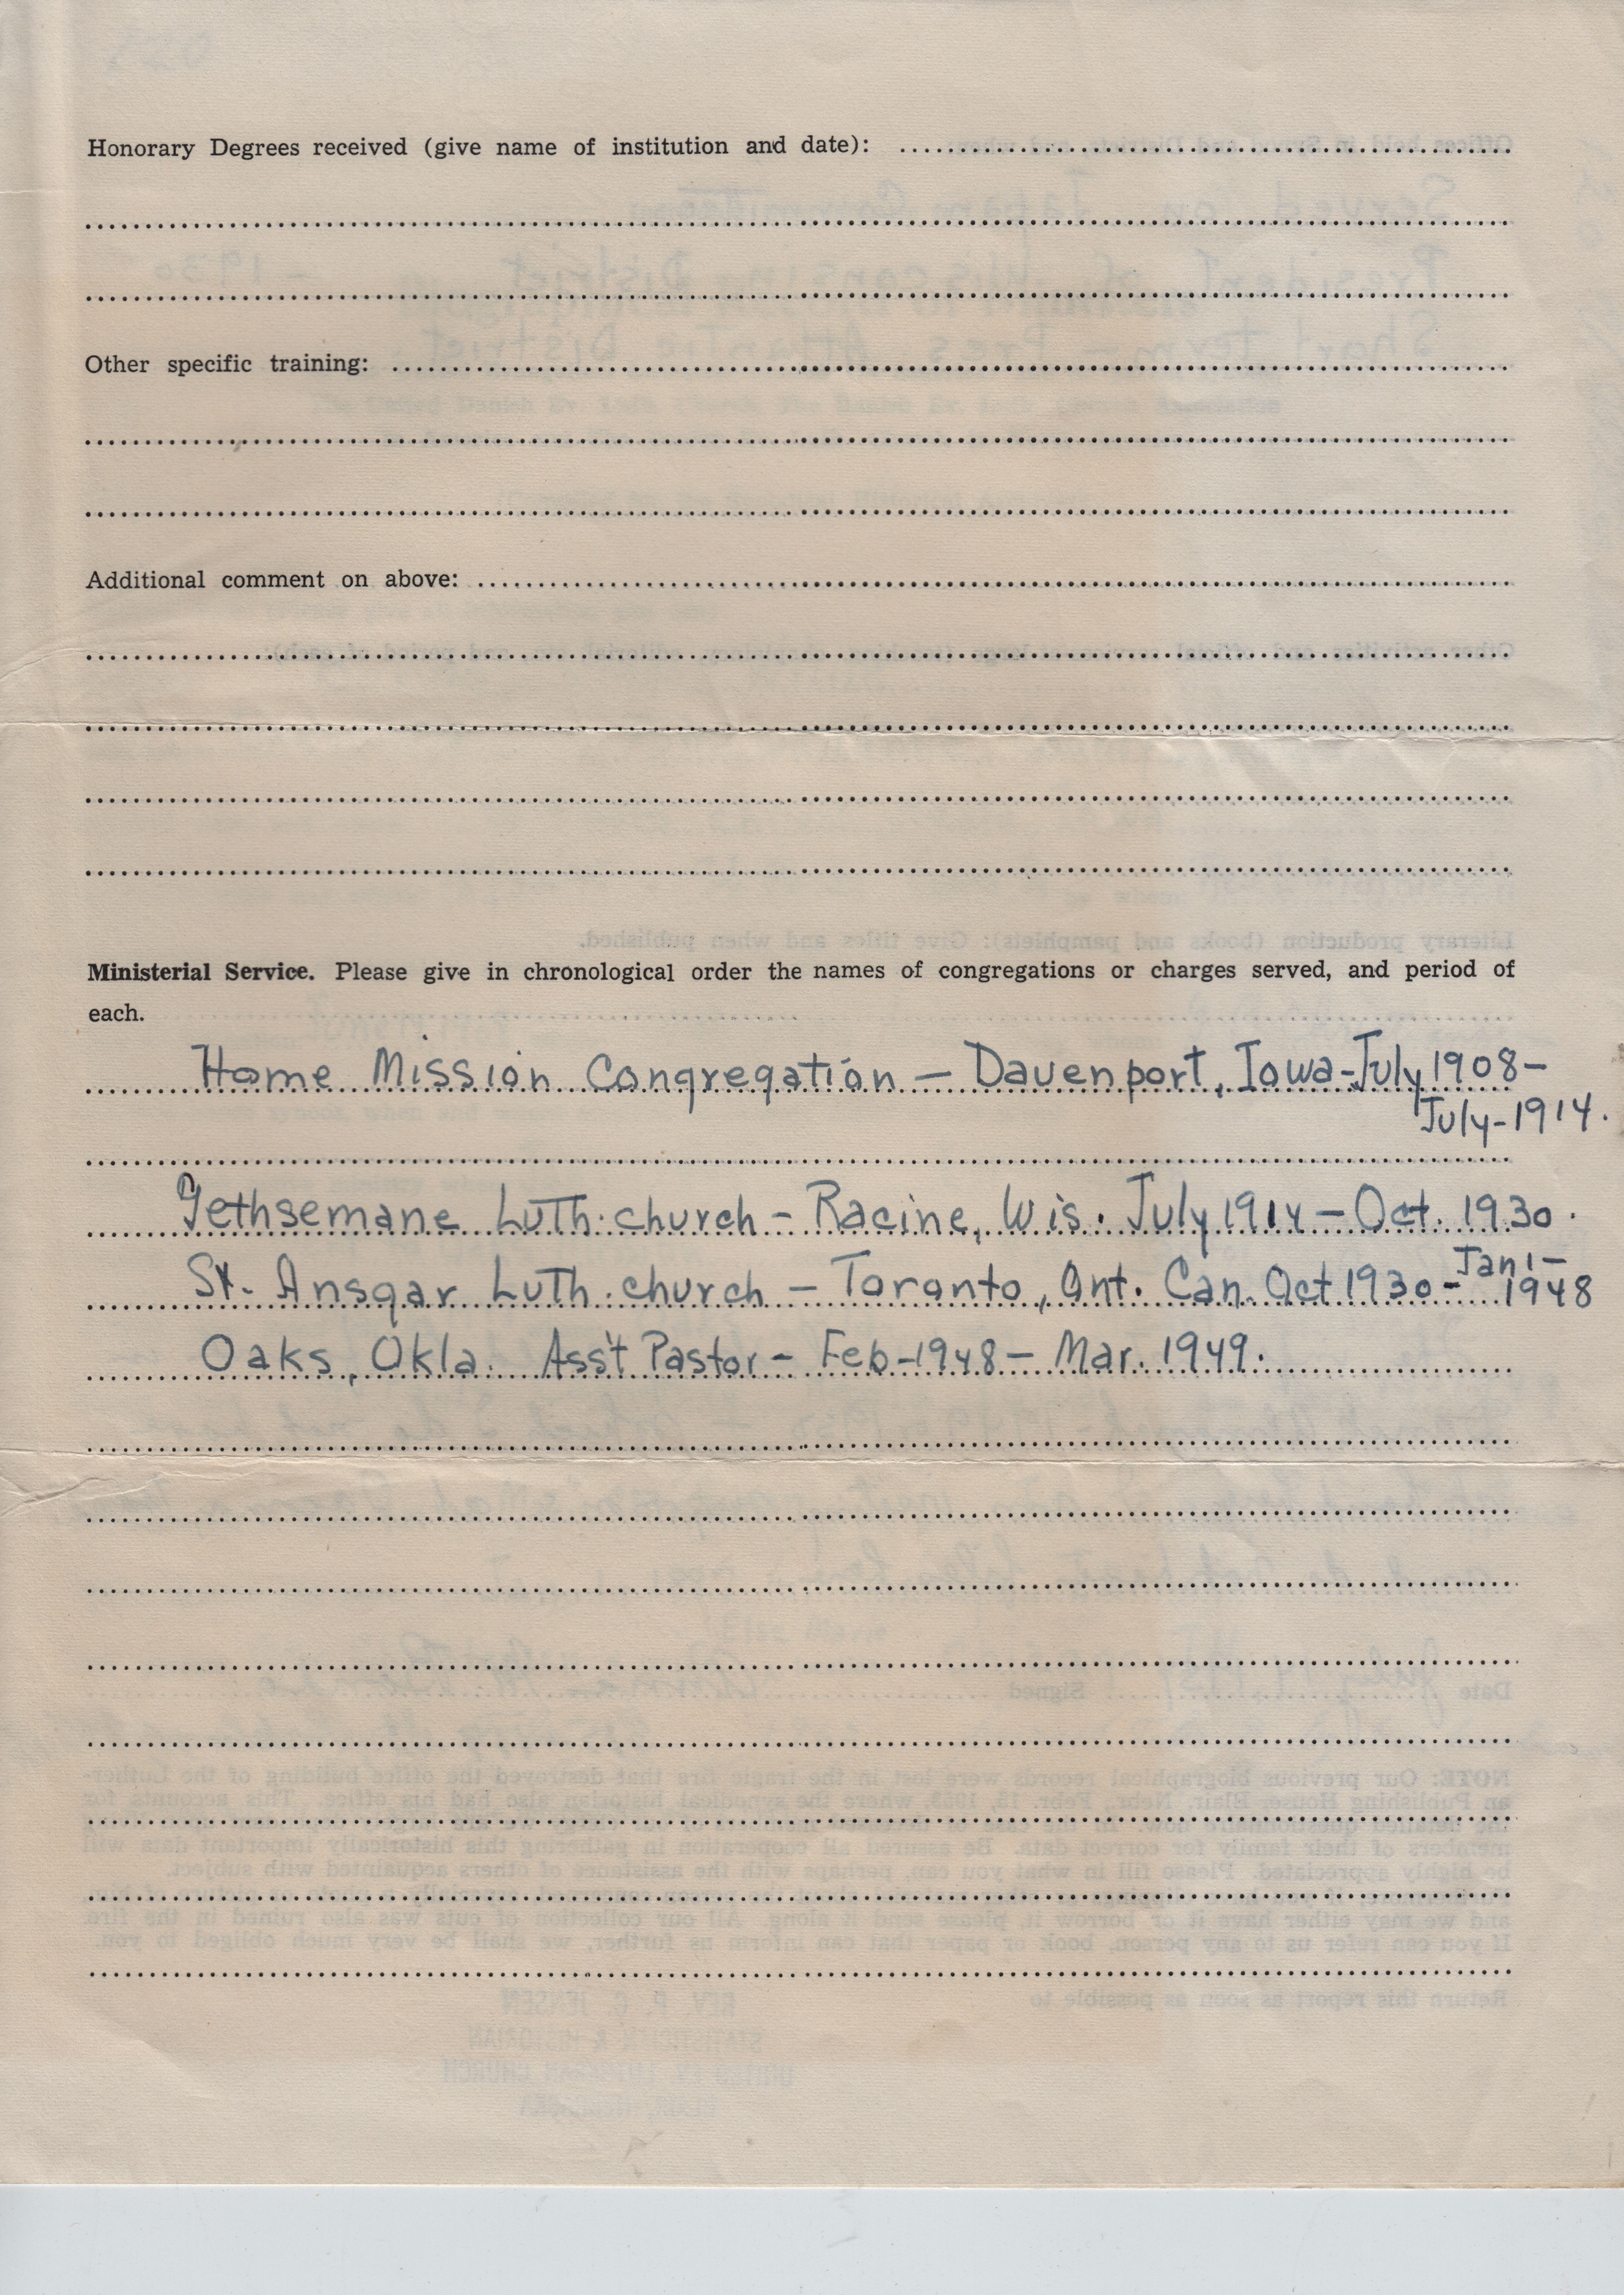 Honorary Degrees received (give name of institution and date):
Other specific training:
Additional comment on above:
Ministerial Service. Please give in chronological order the names of congregations or charges served, and period of
each.
Home Mission Congregation — Davenport, Iowa - July 1908 —
July - 1914.
Gethsemane Luth. church — Racine, Wis. July 1914 — Oct. 1930.
St. Ansgar Luth. church — Toronto, Ont. Can. Oct 1930 - Jan 1 —
1948
Oaks, Okla. Ass't Pastor — Feb - 1948 — Mar. 1949.